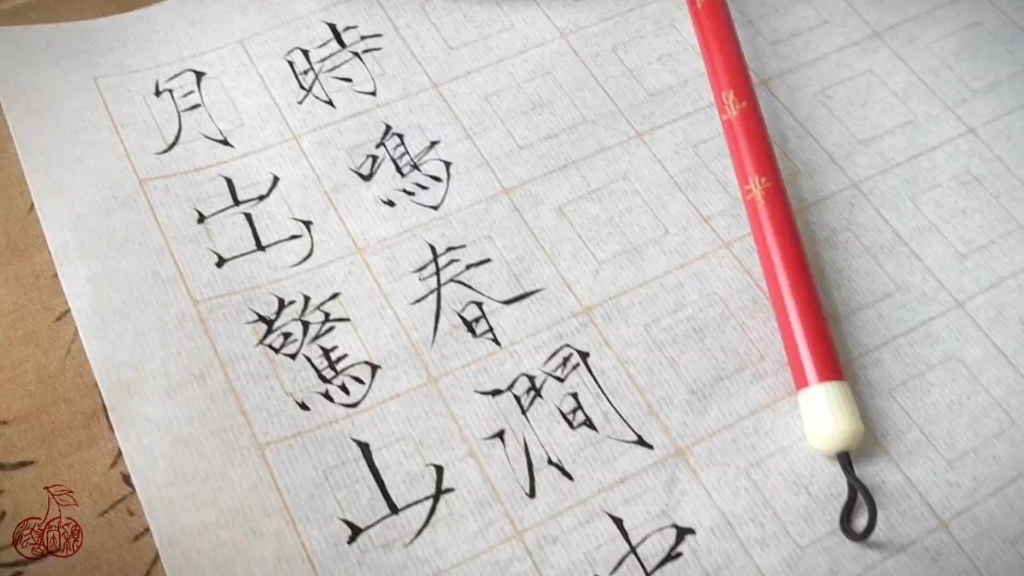 月出驚山
時鳴春澗